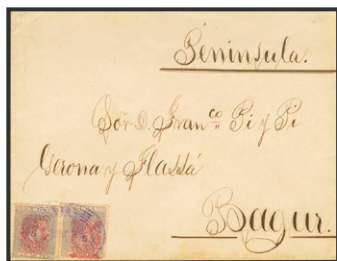 Península.
Sor. D. Franco. Pi y Pi
Gerona y Flassá
Bagur.